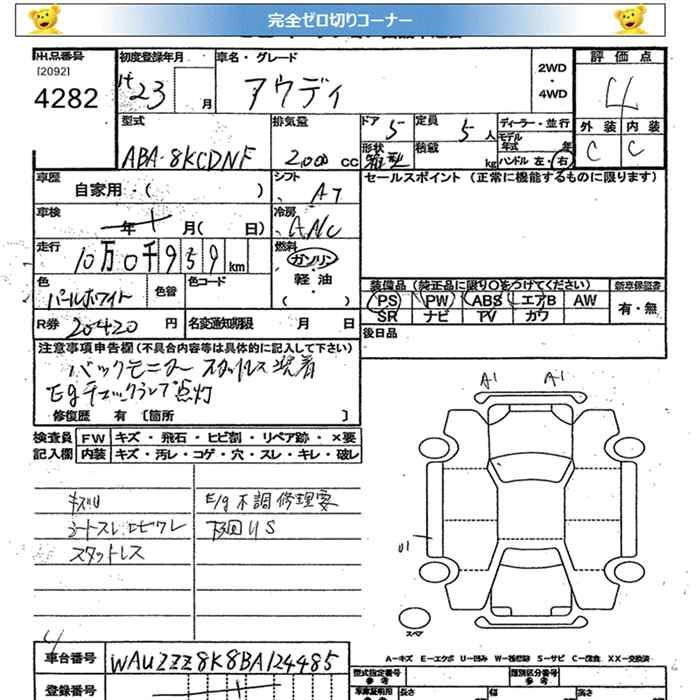 完全ゼロ切りコーナー
出品番号 初度登録年月 車名・グレード 2WD・4WD 評価点
[2092]
4282 H23 月 アウディ 4
外装 内装
C C
型式 排気量 ドア 5 定員 5人 ディーラー・並行
モデル年式 年
ABA-8KCDNF 2,000cc 形状 箱型 積載 kg ハンドル 左・右
車歴 シフト セールスポイント(正常に機能するものに限ります)
自家用・( ) AT
車検 冷房
年 月( 日)
走行 燃料
10万0千959km ガソリン
軽油
( )
色 色替 色コード
パールホワイト
装備品(純正品に限り○をつけてください) 新車保証書
PS PW ABS エアB AW 有・無
SR ナビ TV カワ
R券 20420円 名変通知期限 月 日 後日品
注意事項申告欄(不具合内容等は具体的に記入して下さい)
バックモニター スタットレス装着
Egチェックランプ点灯
修復歴 有〔箇所 〕
A1 A1
検査員 FW キズ・飛石・ヒビ割・リペア跡・×要
記入欄 内装 キズ・汚レ・コゲ・穴・スレ・キレ・破レ
キズU E/g不調修理要
シートスレ
スタットレス 下回りS
U1
スペア
A-キズ E-エクボ U-凹み W-補修跡 S-サビ C-腐食 XX-交換済
4
車台番号 WAUZZZ8K8BA124485
型式指定番号 参考 類別区分番号 参考
登録番号 車庫証明用 参考 長さ 幅 高さ